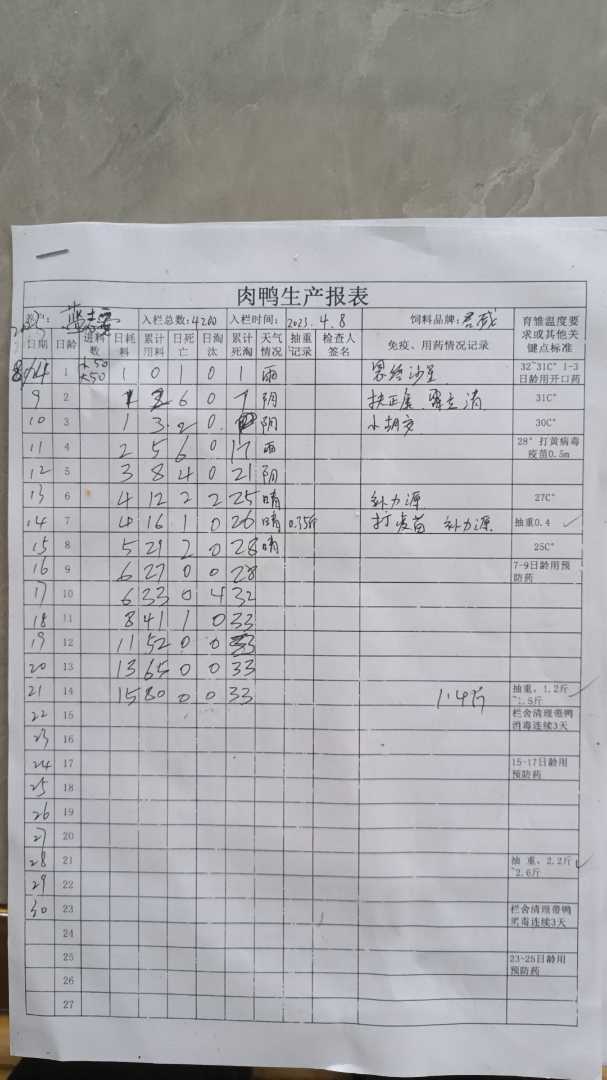 肉鸭生产报表
入栏总数:4200 入栏时间: 2023.4.8 饲料品牌: 君威 育雏温度要求或其他关键点标准
日期 日龄 进料数 日耗料 累计用料 日死亡 日淘汰 累计死淘 天气情况 抽重记录 检查人签名 免疫、用药情况记录
8/4 1 50 50 1 0 0 1 雨 32~31C° 1-3日龄用开口药
9 2 1 2 6 0 7 阴 31C°
10 3 1 3 2 0 阴 30C°
11 4 2 5 6 0 17 雨 28° 打黄病毒疫苗0.5m
12 5 3 8 4 0 21 阴
13 6 4 12 2 2 25 晴 补力源 27C°
14 7 4 16 1 0 26 晴 0.35斤 打疫苗 补力源 抽重0.4
15 8 5 21 2 0 28 晴 25C°
16 9 6 27 0 0 28 7-9日龄用预防药
17 10 6 33 0 4 32
18 11 8 41 1 0 33
19 12 11 52 0 0 33
20 13 13 65 0 0 33
21 14 15 80 0 0 33 1.4斤 抽重，1.2斤~1.5斤
22 15 栏舍清理带鸭消毒连续3天
23 16
24 17 15-17日龄用预防药
25 18
26 19
27 20
28 21 抽 重，2.2斤~2.6斤
29 22
30 23 栏舍清理带鸭消毒连续3天
24
25 23-25日龄用预防药
26
27